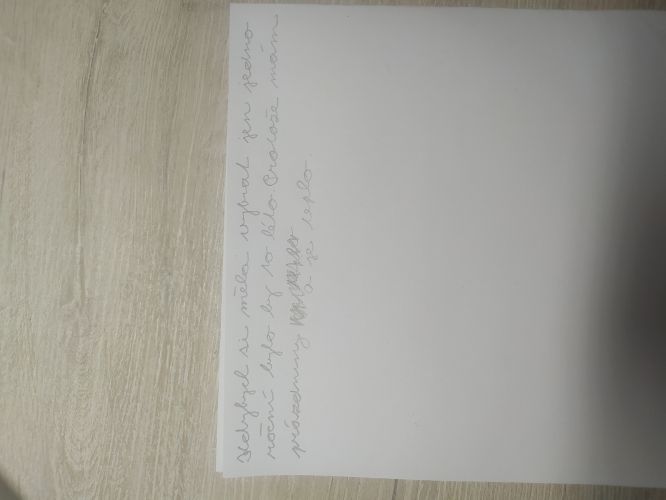 Kdybych si měla vybrat jen jedno
roční bylo by to léto. Protože mám
prázdniny a je teplo.